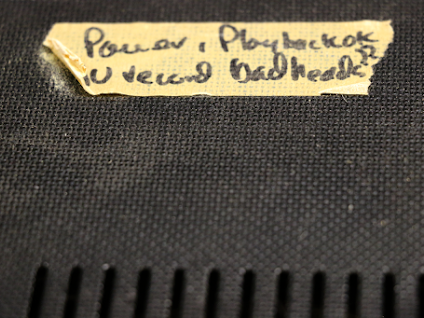 Power, Playback ok
in record bad heads?